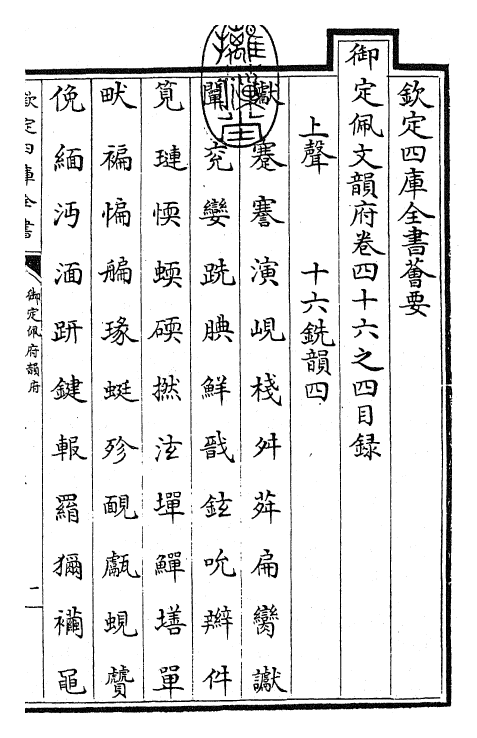 欽定四庫全書薈要
御定佩文韻府卷四十六之四目録
上聲 十六銑韻四
巘蹇謇演峴棧舛荈扁臠讞
闡兖孌跣腆鮮戩鉉吮辮件
筧璉愞蝡碝撚泫墠鱓墡單
畎褊惼艑瑑蜓殄靦甗蜆贙
俛緬沔湎趼鍵報羂獮襺黽
欽定四庫全書
御定佩府韻府
二